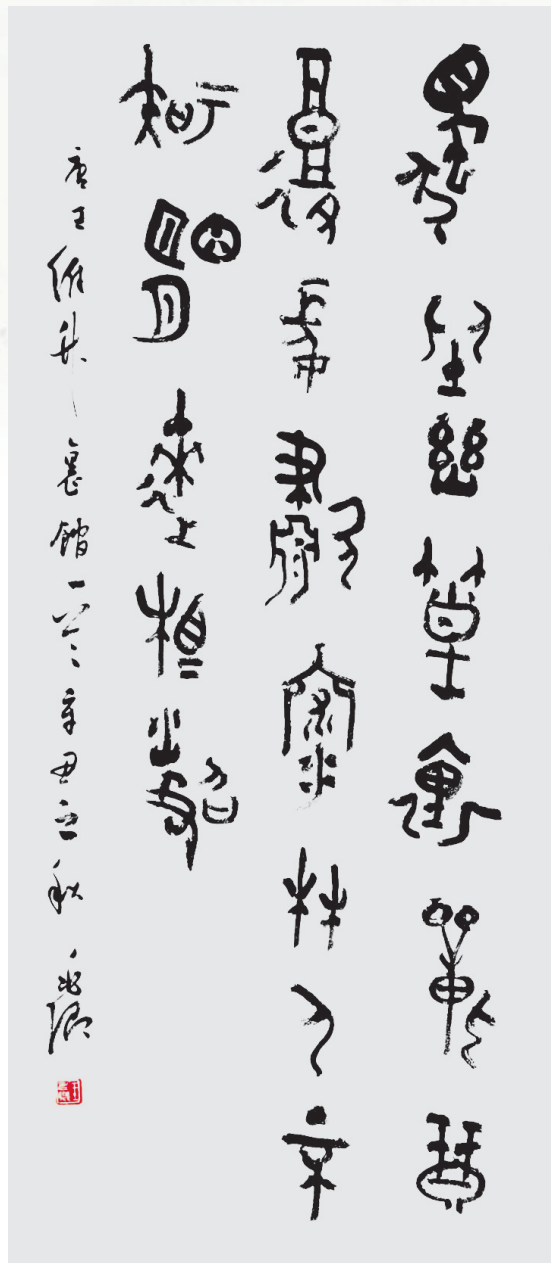 獨坐幽篁裏彈琴
復長嘯深林人不
知明月來相照
唐王維竹裏館一首辛丑之秋